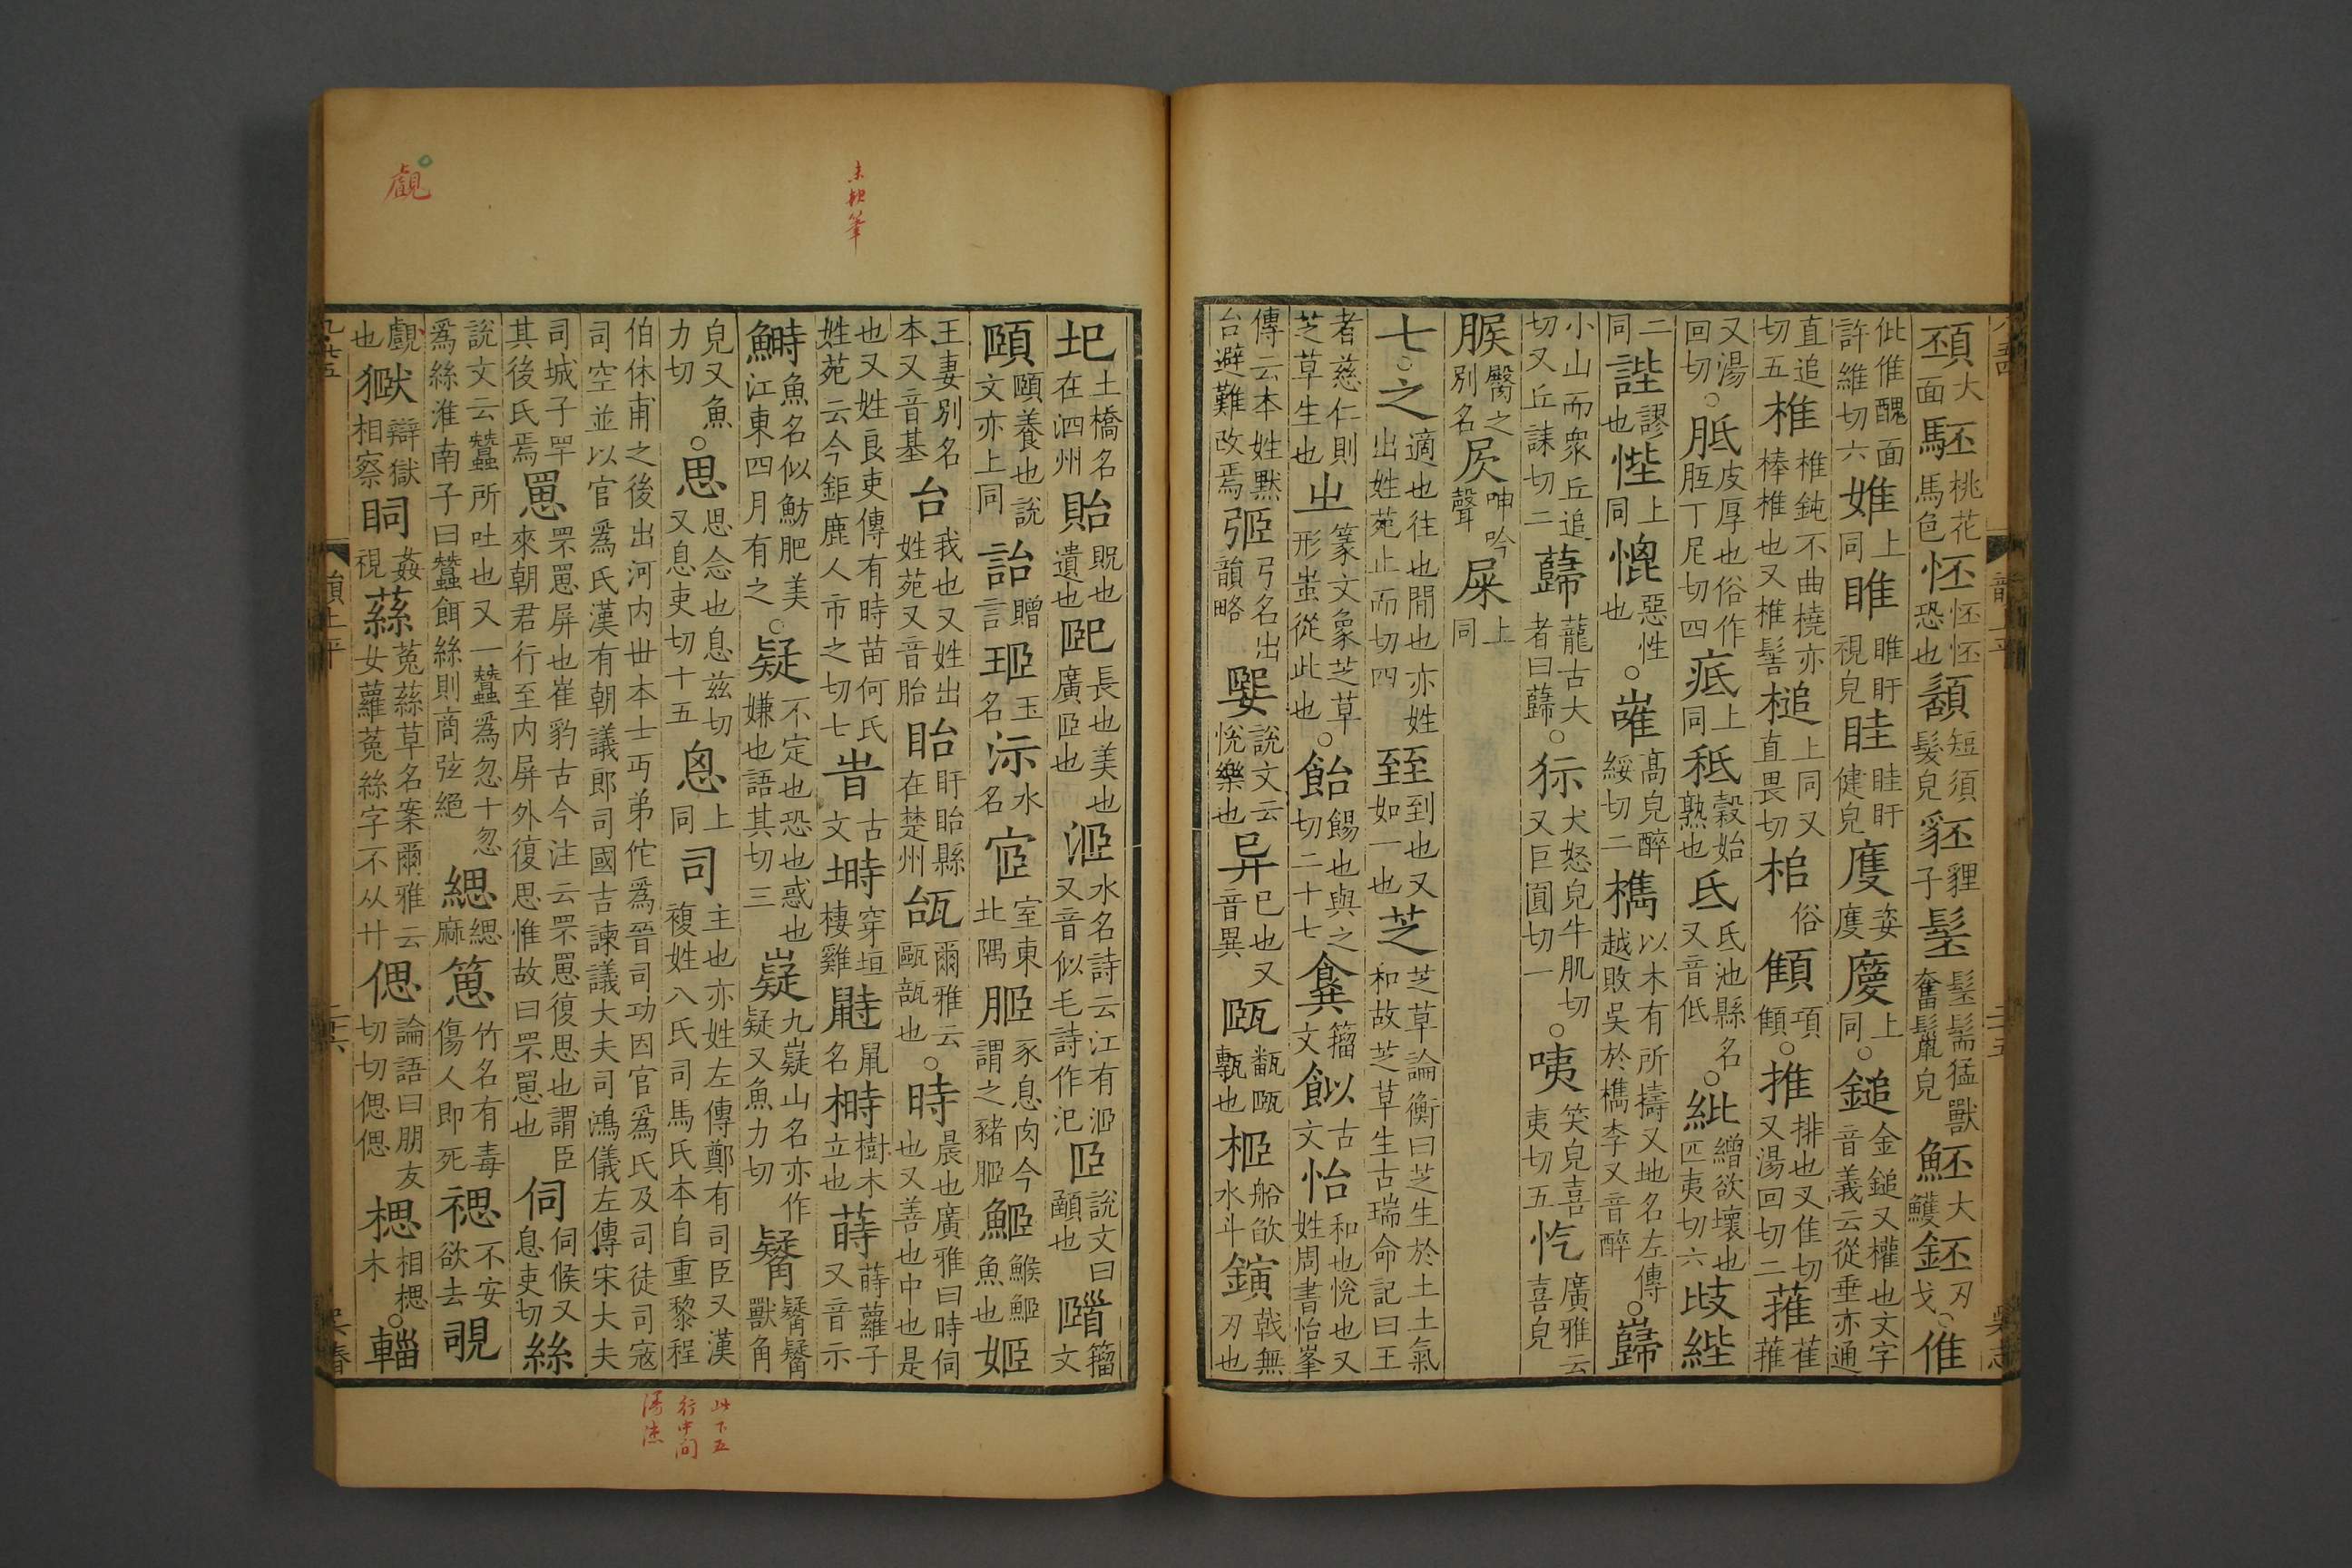 䫠大面駓桃花馬色怌怌怌恐也䫌短須髮皃豾貍子髬髬髵猛獸奮鬣皃魾大鱯鉟刃戈○倠
仳倠醜面許維切六婎上同睢睢盱視皃眭眭盱健皃㢑姿㢑𢋅上同○鎚金鎚又權也文字音義云從垂亦通
直追切五椎椎鈍不曲橈亦棒椎也又椎髻槌上同又直畏切桘俗顀項顀○推排也又隹切又湯回切二蓷萑蓷
又湯回切○胝皮厚也俗作胵丁尼切四疷上同秪穀始熟也氐氐池縣名又音低○紕繒欲壞也匹夷切六㱟𦃋
二同䛰謬也悂上同㥓惡性也○嶉高皃醉綏切二檇以木有所擣又地名左傳越敗吳於檇李又音醉○巋
小山而衆丘追切又丘誄切二蘬蘢古大者曰蘬○狋犬怒皃牛肌切又巨員切一○咦笑皃喜夷切五忔廣雅云喜皃
脄臀之別名㞎呻吟聲屎上同
七○之適也往也閒也亦姓出姓苑止而切四臸到也又如一也芝芝草論衡曰芝生於土土氣和故芝草生古瑞命記曰王
者慈仁則芝草生也㞢篆文象芝草形蚩從此也○飴餳也與之切二十七𩜋籀文䬮古文怡和也悅也又姓周書怡峯
傳云本姓默台避難改焉弬弓名出韻略㜯說文云悅樂也异已也又音異㼢甂㼢㽃也㮛船㰴水斗鏔戟無刃也
圯土橋名在泗州貽貺也遺也𦣞長也美也廣𦣝也洍水名詩云江有洍又音似毛詩作汜𦣝說文曰顄也𩠡籀文
頤頤養也說文亦上同詒贈言㺿玉名沶水名宧室東北隅䏰豕息肉今謂之豬䏰䱌鯸䱌魚也姬
王妻別名本又音基台我也又姓出姓苑又音胎眙盱眙縣在楚州瓵爾雅云甌瓿也○時晨也廣雅曰時伺也又善也中也是
也又姓良吏傳有時苗何氏姓苑云今鉅鹿人市之切七旹古文塒穿垣棲雞鼭鼠名榯樹木立也蒔蒔蘿子又音示
鰣魚名似魴肥美江東四月有之○疑不定也恐也惑也嫌也語其切三嶷九嶷山名亦作疑又魚力切觺觺觺獸角
皃又魚力切○思思念也息兹切又息吏切十五恖上同司主也亦姓左傳鄭有司臣又漢複姓八氏司馬氏本自重黎程
伯休甫之後出河内世本士丐弟佗爲晉司功因官爲氏及司徒司寇司空並以官爲氏漢有朝議郎司國吉諫議大夫司鴻儀左傳宋大夫
司城子罕其後氏焉罳罘罳屏也崔豹古今注云罘罳復思也謂臣來朝君行至内屏外復思惟故曰罘罳也伺伺候又息吏切絲
說文云蠶所吐也又一蠶爲忽十忽爲絲淮南子曰蠶餌絲則商弦絕緦緦麻䈢竹名有毒傷人即死禗不安欲去覗
覰也㺇辯獄相察䀢姦視蕬菟蕬草名案爾雅云女蘿菟絲字不从廾偲論語曰朋友切切偲偲楒相楒木○輜
未執筆
此下五
行中間